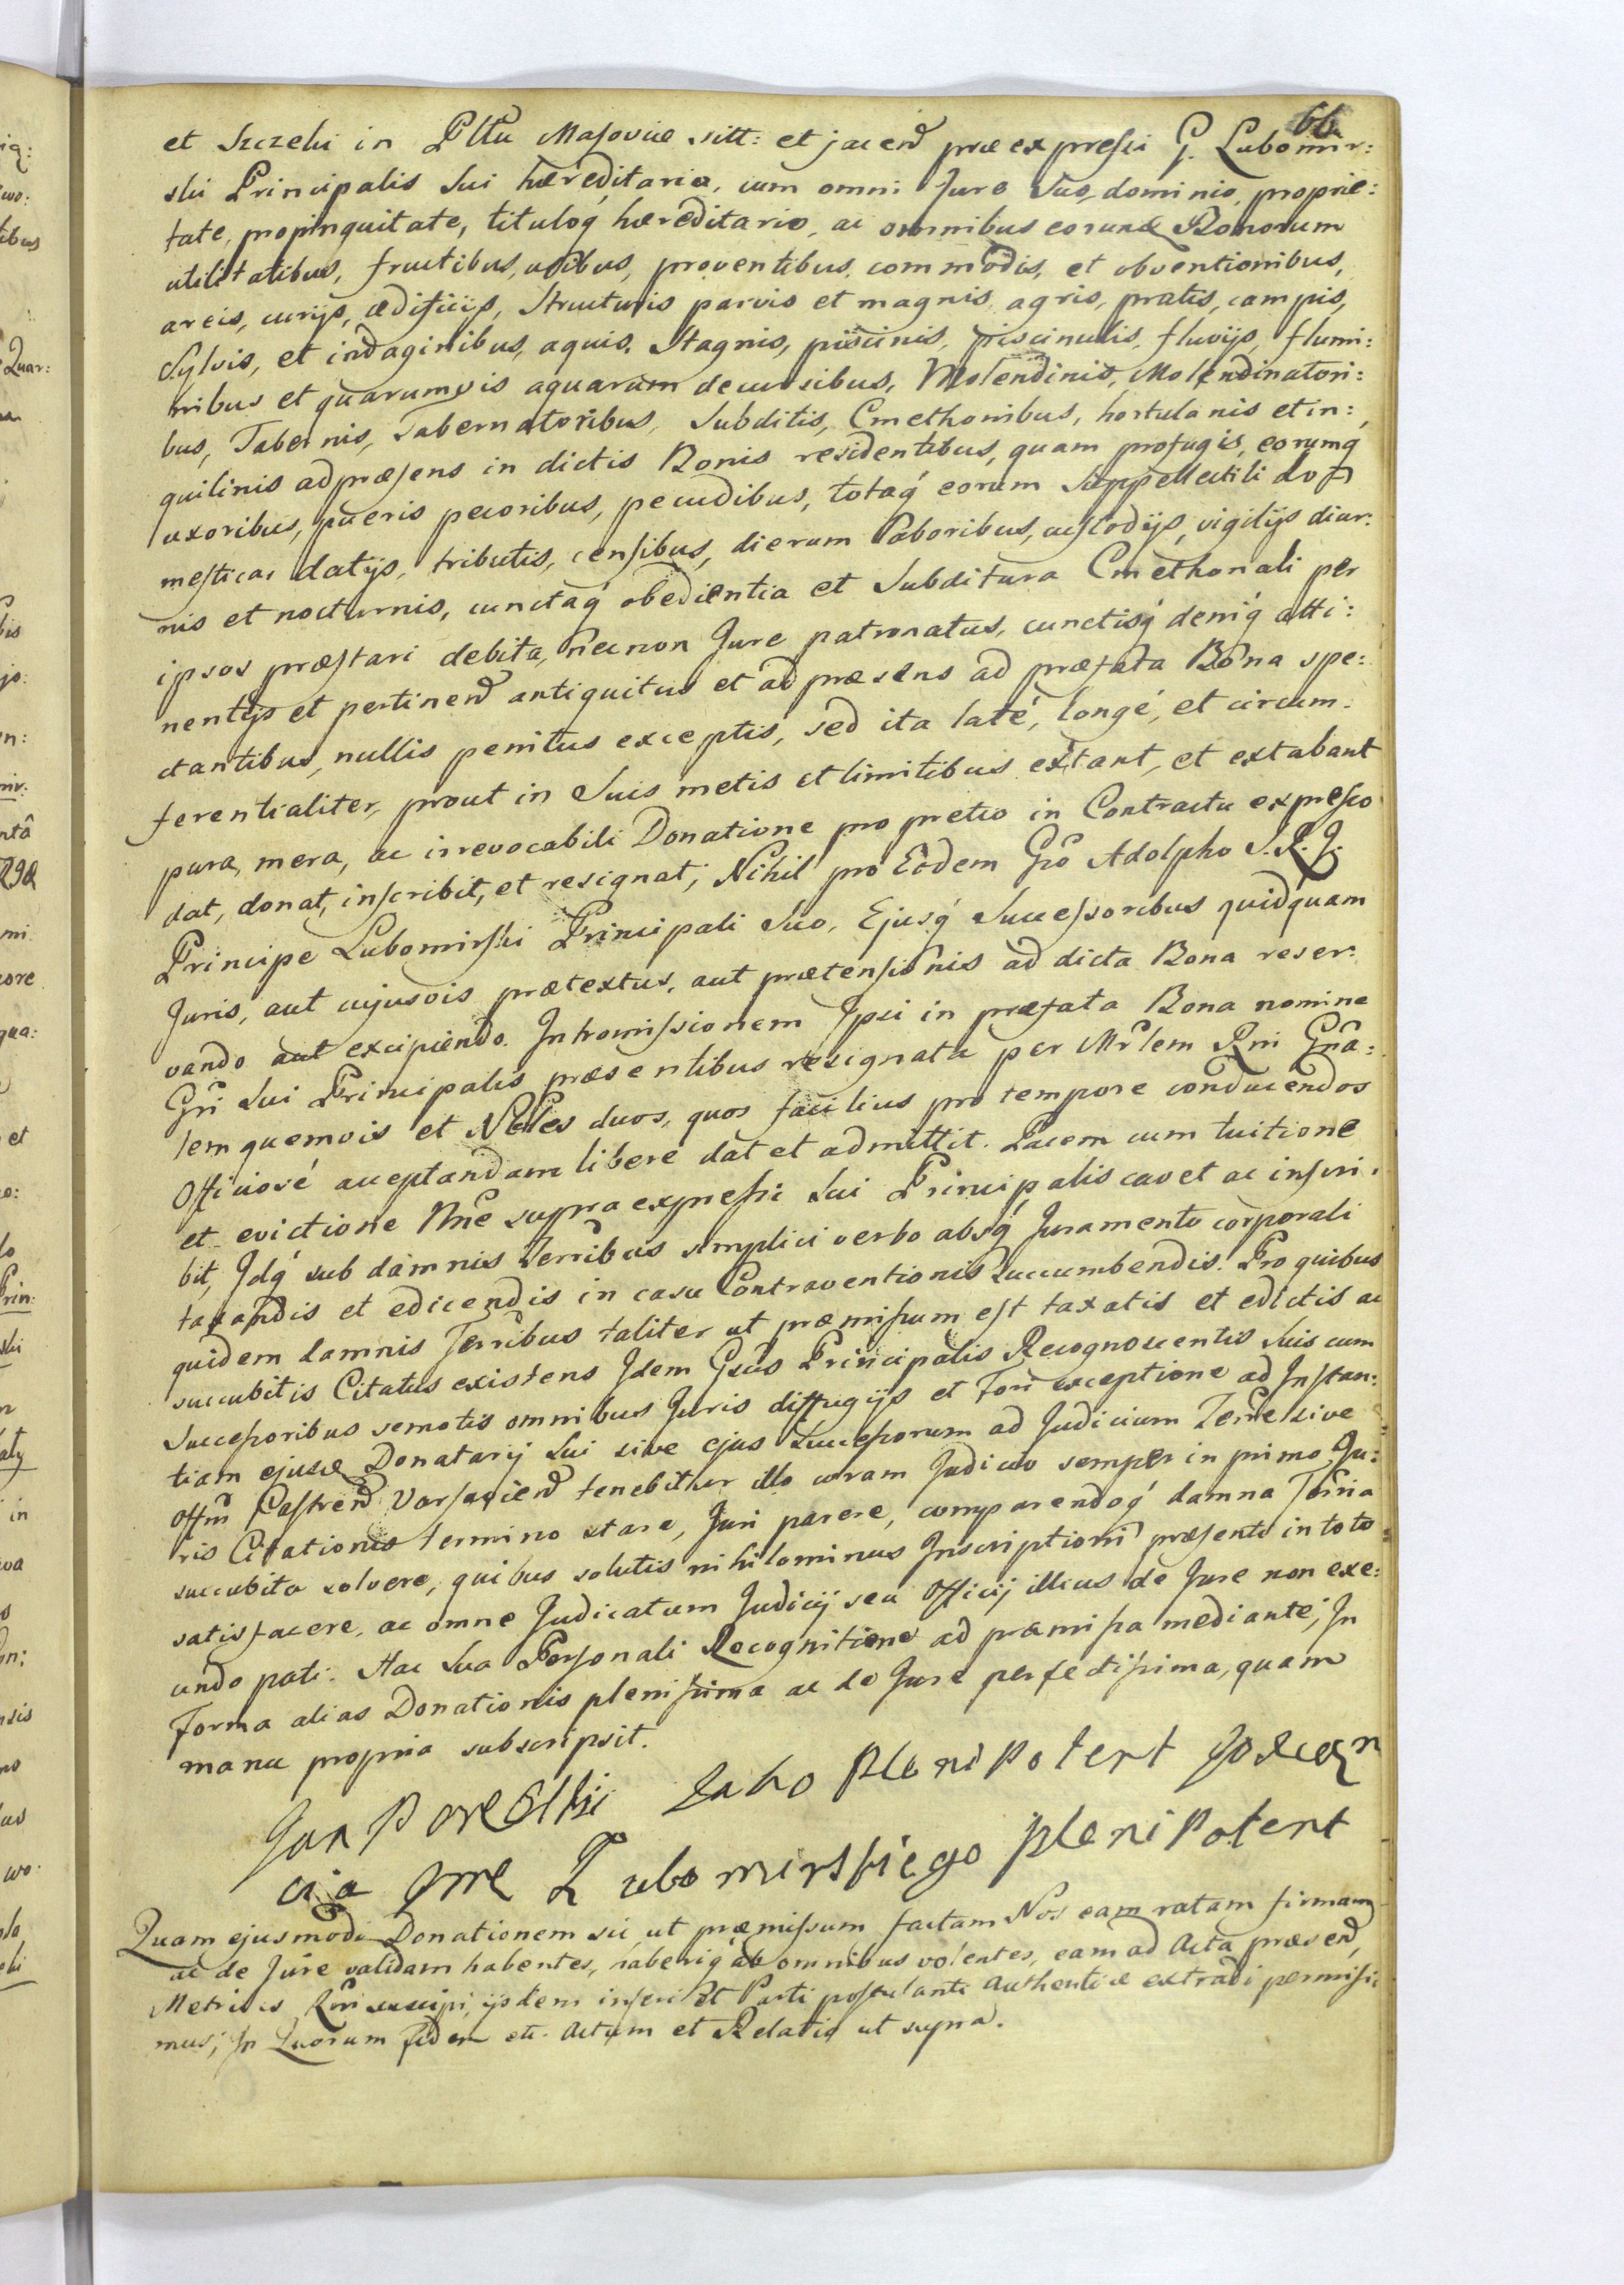 66
et Szczeki in Pltu Masoviæ sitt: et jacend præexpressi G. Lubomir:
ski Principalis sui hæreditaria, cum omni Jure suo, dominio, proprie:
tate, propinquitate, tituloq́ hæreditario, ac omnibus eorund Bonorum
utilitatibus, fructibus, usibus, proventibus, commodis, et obventionibus,
areis, curijs, ædificijs, structuris parvis et magnis, agris, pratis, campis,
Sylvis, et indaginibus, aquis, Stagnis, piscinis, piscinulis, fluvijs, flumi:
nibus et quarumvis aquarum decursibus, Molendinis, Molendinatori:
bus, Tabernis, Tabernatoribus, Subditis, Cmethonibus, hortulanis et in:
quilinis ad præsens in dictis Bonis residentibus, quam profugis, eorumq́
uxoribus, pueris pecoribus, pecudibus, totaq́ eorum Suppellectili do
mestica, datijs, tributis, censibus, dierum laboribus, custodijs, vigilijs diur:
nis et nocturnis, cunctaq́ obedientia et Subditura Cmethonali per
ipsos præstari debita, necnon Jure patronatus, cunctisq́ deniq́ atti:
nentijs et pertinend antiquitus et ad præsens ad præfata Bona spe:
ctantibus, nullis penitus exceptis, sed ita laté, longé, et circum:
ferentialiter, prout in Suis metis et limitibus extant, et extabant
pura, mera, ac irrevocabili Donatione pro pretio in Contractu expresso
dat, donat, inscribit, et resignat; Nihil pro Eodem Gso Adolpho S.R.J.
Principe Lubomirski Principali Suo, Ejusq́ Successoribus quidquam
Juris, aut cujusvis prætextus, aut prætensionis ad dicta Bona reser:
vando aut excipiendo. Intromissionem Ipsi in præfata Bona nomine
Gsi Sui Principalis præsentibus resignata per Mrlem Rni Gna:
lem quemvis et Nbles duos, quos facilius pro tempore conducendos
Officiosé acceptandam liberé dat et admittit. Pacem cum tuitione
et evictione Nne supra expressi Sui Principalis cavet ac inscri:
bit, Jdq́ sub damnis Terribus simplici verbo absq́ Juramento corporali
taxandis et edicendis in casu Contraventionis succumbendis. Pro quibus
quidem damnis Terribus taliter ut præmissum est taxatis et edictis ac
succubitis Citatus existens Jdem Gsus Principalis Recognoscentis Suis cum
Successoribus semotis omnibus Juris diffugijs et Fori exceptione ad Instan:
tiam ejusd Donatarij Sui sive ejus Successorum ad Judicium Terre sive
Offm Castrend Varsaviend tenebitur illo coram Judicio semper in primo Ju:
ris Citationis termino stare, Juri parere, comparendoq́ damna Terria
succubita solvere, quibus solutis nihilominus Inscriptioni præsenti in toto
satisfacere, ac omne Judicatum Judicij seu Officij illius de Jure non exe:
undo pati. Hac Sua Personali Recognitione ad præmissa mediante; In
Forma alias Donationis plenissima ac de Jure perfectissima, quam
manu propria subscripsit.
Jako Plenipotent
Lubomirskiego plenipotent
Quam ejusmodi Donationem sic ut præmissum factam Nos eam ratam firmam
ac de Jure validam habentes, haberiq́ ab omnibus volentes, eam ad Acta præsend,
Metrices Rni suscipi, ijsdem inseri et Parti postulanti authenticé extradi permisi:
mus; In Quorum fidem etc. Actum et Relatio ut supra.